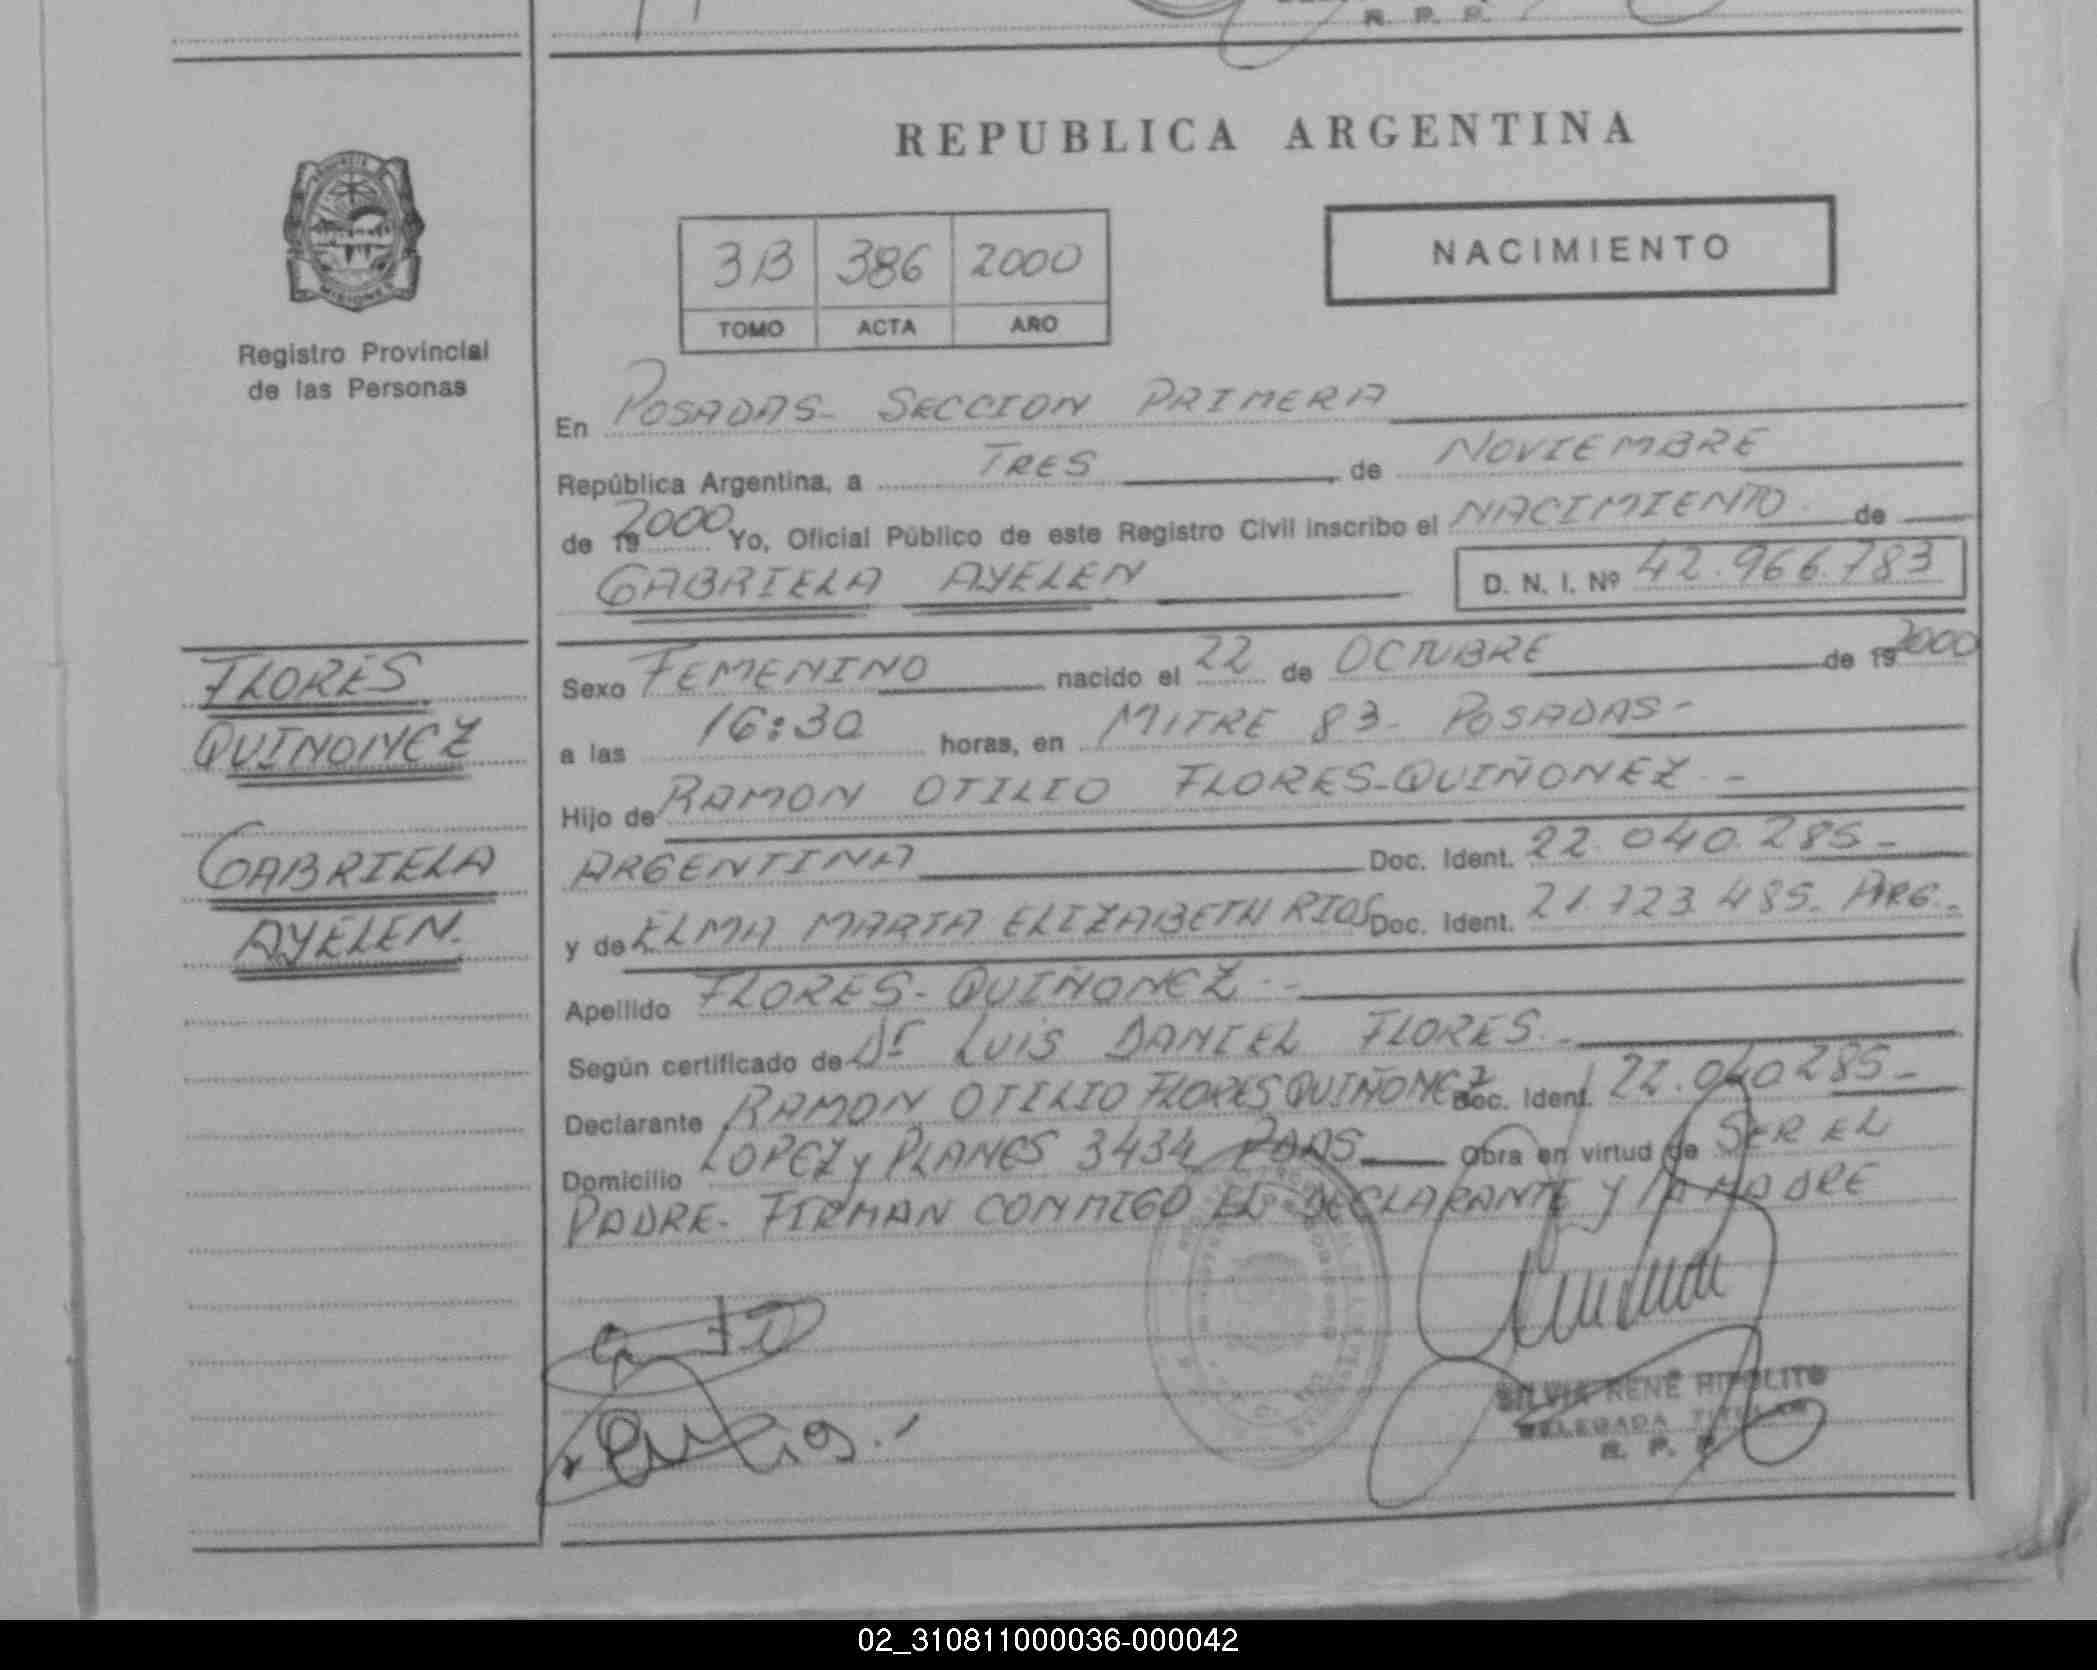 R. P. P.
REPUBLICA ARGENTINA
MISIONES
Registro Provincial
de las Personas
3B 386 2000
TOMO ACTA AÑO
NACIMIENTO
En POSADAS- SECCION PRIMERA
República Argentina, a TRES de NOVIEMBRE
de 19 2000 Yo, Oficial Público de este Registro Civil inscribo el NACIMIENTO de
GABRIELA AYELEN D. N. I. Nº 42.966.783
FLORES
QUINONEZ
GABRIELA
AYELEN.
Sexo FEMENINO nacido el 22 de OCTUBRE de 19 2000
a las 16:30 horas, en MITRE 83- POSADAS-
Hijo de RAMON OTILIO FLORES-QUIÑONEZ.-
ARGENTINA Doc. Ident. 22.040.285-
y de ELMA MARIA ELIZABETH RIOS Doc. Ident. 21.723.485. ARG.-
Apellido FLORES-QUIÑONEZ.-
Según certificado de Dr LUIS DANIEL FLORES.-
Declarante RAMON OTILIO FLORES QUIÑONEZ Doc. Ident. 22.040285-
Domicilio LOPEZ y PLANES 3434 PDAS. Obra en virtud de SER EL
PADRE. FIRMAN CONMIGO EL DECLARANTE y LA MADRE
SILVIA RENÉ HIPOLITO
DELEGADA TITULAR
R. P. P.
02_310811000036-000042